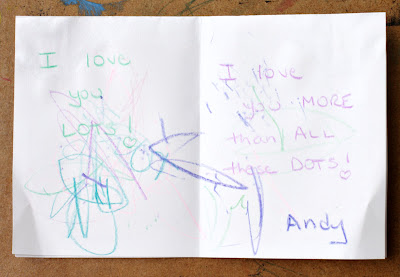 I love
you
LOTS!
I love
you MORE
than ALL
those DOTS!
Andy